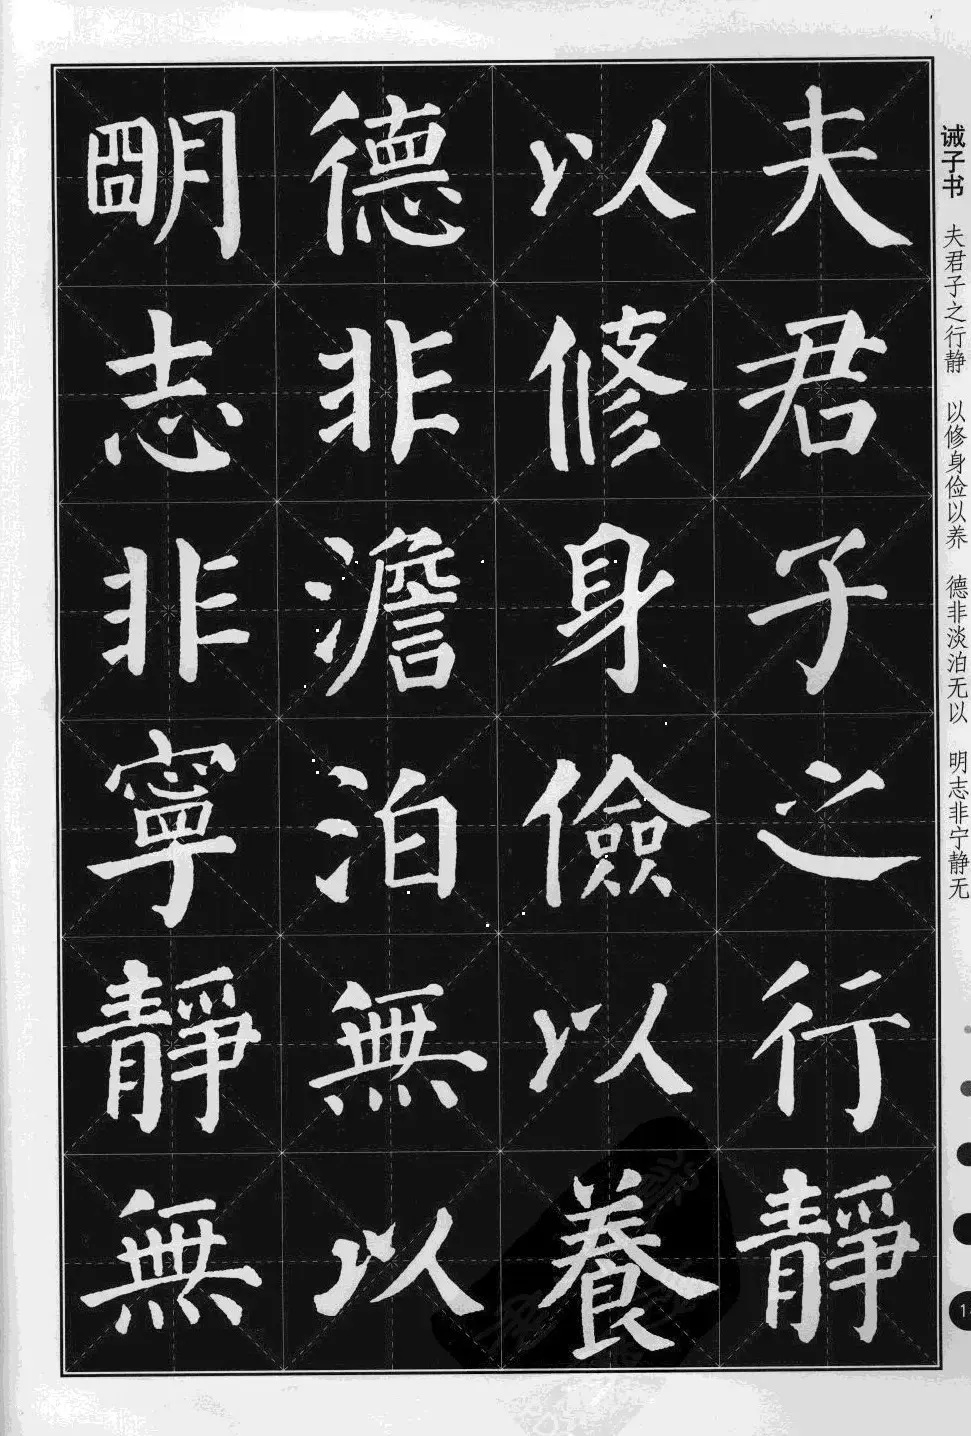 诫子书 夫君子之行静 以修身俭以养 德非淡泊无以 明志非宁静无
夫君子之行靜
以修身儉以養
德非澹泊無以
明志非寧靜無
1